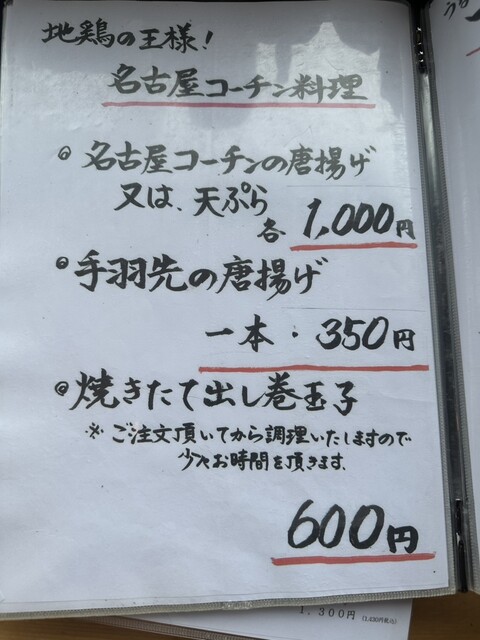 地鶏の王様!
名古屋コーチン料理
名古屋コーチンの唐揚げ
又は、天ぷら
各 1,000円
手羽先の唐揚げ
一本・350円
焼きたて出し巻玉子
※ ご注文頂いてから調理いたしますので
少々お時間を頂きます、
600円
1,300円 (1,430円税込)